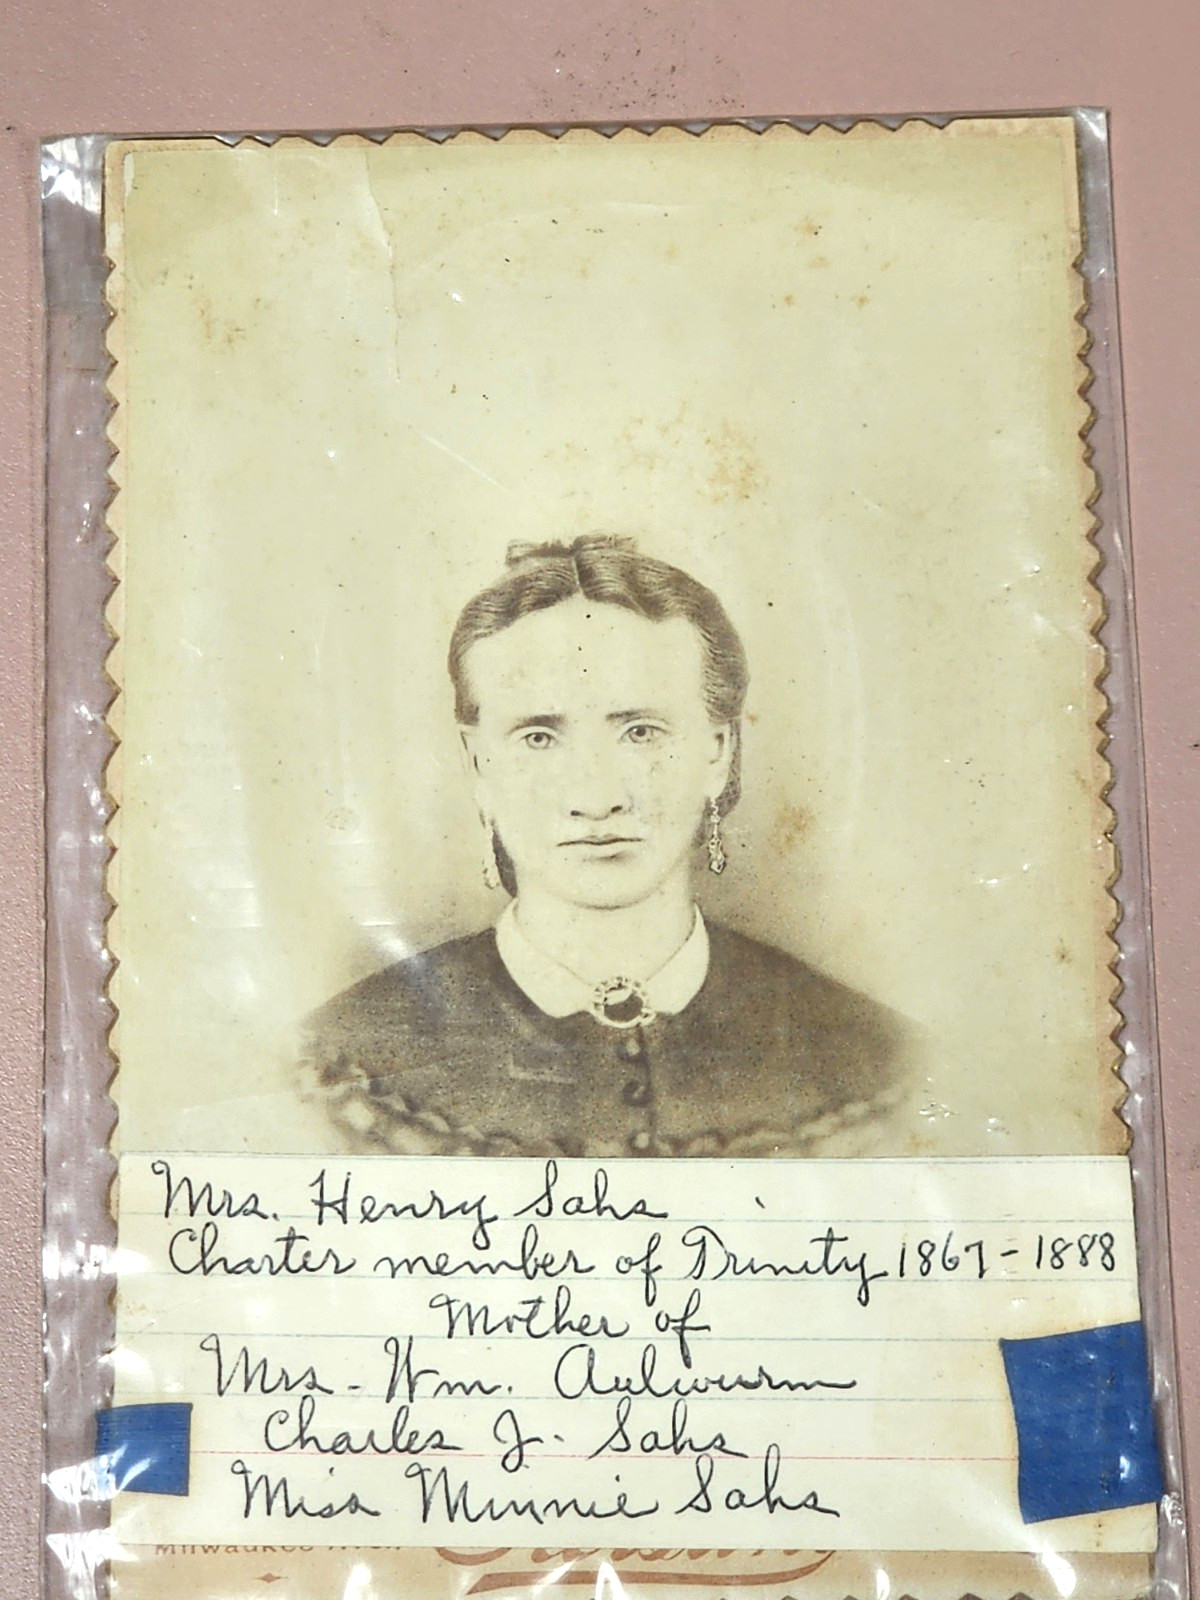 Mrs. Henry Sahs
Charter member of Trinity 1867-1888
Mother of
Mrs. Wm. Aulwurm
Charles J. Sahs
Miss Minnie Sahs
Milwaukee Aven.